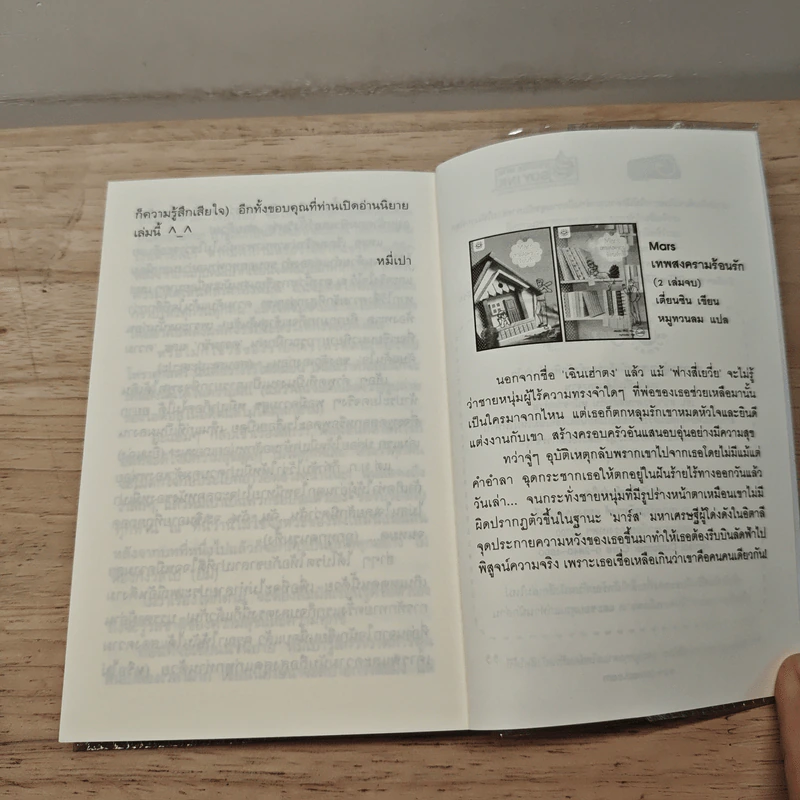 ก็ความรู้สึกเสียใจ) อีกทั้งขอบคุณที่ท่านเปิดอ่านนิยาย
เล่มนี้ ^_^
หมี่เปา
Mars
เทพสงครามร้อนรัก
(2 เล่มจบ)
เตี่ยนซิน เขียน
หมูหวานลม แปล
นอกจากชื่อ 'เฉินเฮ่าตง' แล้ว แม้ 'ฟางสี่เยวี่ย' จะไม่รู้
ว่าชายหนุ่มผู้ไร้ความทรงจำใดๆ ที่พ่อของเธอช่วยเหลือมานั้น
เป็นใครมาจากไหน แต่เธอก็ตกหลุมรักเขาหมดหัวใจและยินดี
แต่งงานกับเขา สร้างครอบครัวอันแสนอบอุ่นอย่างมีความสุข
ทว่าจู่ๆ อุบัติเหตุกลับพรากเขาไปจากเธอโดยไม่มีแม้แต่
คำอำลา ฉุดกระชากเธอให้ตกอยู่ในฝันร้ายไร้ทางออกวันแล้ว
วันเล่า... จนกระทั่งชายหนุ่มที่มีรูปร่างหน้าตาเหมือนเขาไม่มี
ผิดปรากฏตัวขึ้นในฐานะ 'มาร์ส' มหาเศรษฐีผู้โด่งดังในอิตาลี
จุดประกายความหวังของเธอขึ้นมาทำให้เธอต้องรีบบินลัดฟ้าไป
พิสูจน์ความจริง เพราะเธอเชื่อเหลือเกินว่าเขาคือคนคนเดียวกัน!